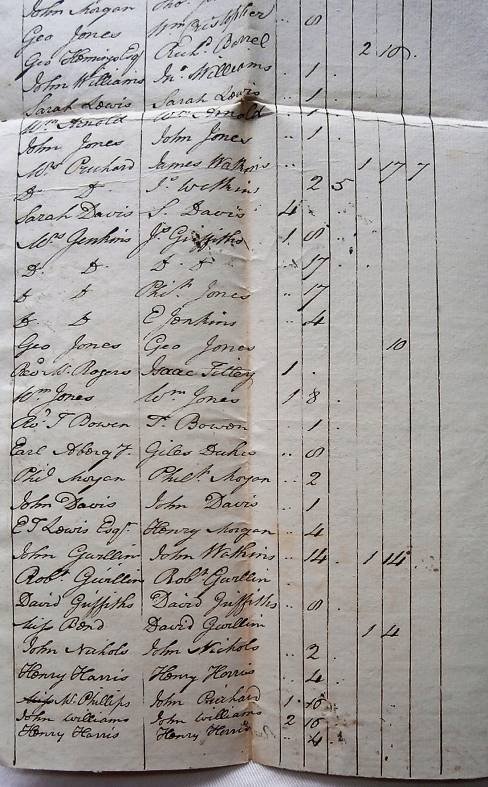 John Morgan
Geo Jones Wm Cristopher .. 8
Geo Hemings Esqr Richd Bonel 2 10 .
John Williams Jno Williams .. 1 .
Sarah Lewis Sarah Lewis .. 1 .
Wm Arnold Wm Arnold .. 1 .
John Jones John Jones .. 1 .
Mrs Prichard James Watkins .. 1 17 7
Do Do Js Watkins .. 2 5
Sarah Davis S Davis 4 .
Mrs Jenkins Js Griffiths 1 8 .
Do Do Do Do .. 17 .
Do Do Phil. Jones .. 17
Do Do E Jenkins .. 4
Geo Jones Geo Jones 10
Revd Mr Rogers Isaac Tilley 1 .
Wm Jones Wm Jones 1 8 .
Revd T Bowen T. Bowen .. 1 .
Earl Aberg.y. Giles Dukes .. 8
Phil Morgan Phil. Morgan .. 2
John Davis John Davis .. 1
E T Lewis Esqr. Henry Morgan .. 4
John Gwillim John Watkins .. 14 . 1 14
Robt Gwillim Robt Gwillim
David Griffiths David Griffiths .. 8
Miss Bend David Gwillim 1 4
John Nichols John Nichols .. 2 .
Henry Harris Henry Harris .. 4 .
Mr Phillips John Prichard 1 .
John Williams John Williams 2
Henry Harris Henry Harris .. 4 .